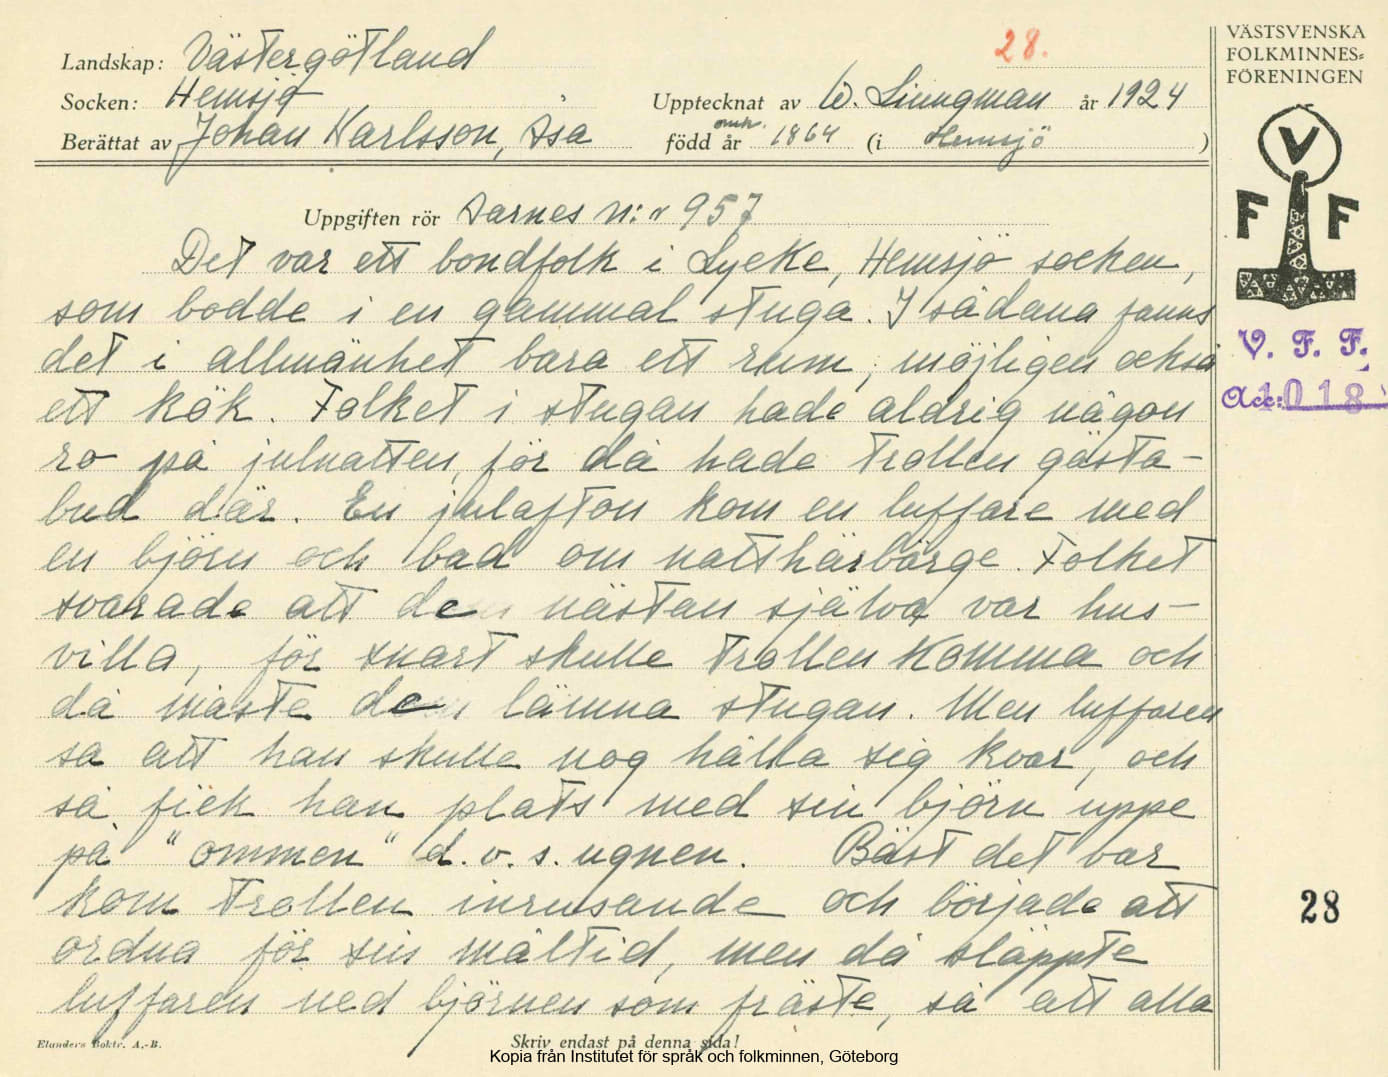 Landskap: Västergötland
28.
Socken: Hemsjö
Upptecknat av W. Liungman år 1924
Berättat av Johan Karlsson, Asa
född år omkr. 1864 (i Hemsjö)
VÄSTSVENSKA
FOLKMINNES-
FÖRENINGEN
V
F F
V. F. F.
Acc: 1018
Uppgiften rör Aarnes n:r 957
Det var ett bondfolk i Lycke, Hemsjö socken,
som bodde i en gammal stuga. I sådana fanns
det i allmänhet bara ett rum, möjligen också
ett kök. Folket i stugan hade aldrig någon
ro på julnatten, för då hade trollen gästa-
bud där. En julafton kom en luffare med
en björn och bad om natthärbärge. Folket
svarade att de nästan själva var hus-
villa, för snart skulle trollen komma och
då måste de lämna stugan. Men luffaren
sa att han skulle nog hålla sig kvar, och
så fick han plats med sin björn uppe
på "ommen" d.v.s. ugnen. Bäst det var
kom trollen inrusande och började att
ordna för sin måltid, men då släppte
luffaren ned björnen som fräste, så att alla
28
Elanders Boktr. A.-B.
Skriv endast på denna sida!
Kopia från Institutet för språk och folkminnen, Göteborg